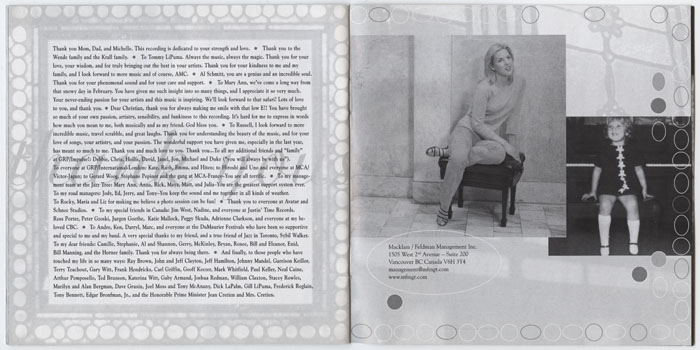 Thank you Mom, Dad, and Michelle. This recording is dedicated to your strength and love. ✷ Thank you to the
Wende family and the Krall family. ✷ To Tommy LiPuma. Always the music, always the magic. Thank you for your
love, your wisdom, and for truly bringing out the best in your artists. Thank you for your kindness to me and my
family, and I look forward to more music and of course, AMC. ✷ Al Schmitt, you are a genius and an incredible soul.
Thank you for your phenomenal sound and for your care and support. ✷ To Mary Ann, we've come a long way from
that snowy day in February. You have given me such insight into so many things, and I appreciate it so very much.
Your never-ending passion for your artists and this music is inspiring. We'll look forward to that safari! Lots of love
to you, and thank you. ✷ Dear Christian, thank you for always making me smile with that low E!! You have brought
so much of your own passion, artistry, sensibility, and funkiness to this recording. It's hard for me to express in words
how much you mean to me, both musically and as my friend. God bless you. ✷ To Russell, I look forward to more
incredible music, travel scrabble, and great laughs. Thank you for understanding the beauty of the music, and for your
love of songs, your artistry, and your passion. The wonderful support you have given me, especially in the last year,
has meant so much to me. Thank you and much love to you. Thank you...To all my additional friends and "family"
at GRP/Impulse!: Debbie, Chris, Hollis, David, Janel, Jon, Michael and Duke ("you will always be with us").
To everyone at GRP/International–London: Kate, Ruth, Emma, and Hiten; to Hiroshi and Uino and everyone at MCA/
Victor-Japan; to Gerard Woog, Stéphane Popinet and the gang at MCA-France–You are all terrific. ✷ To my manage-
ment team at the Jazz Tree: Mary Ann, Anna, Rick, Maya, Matt, and Julia–You are the greatest support system ever.
To my road managers: Jody, Ed, Jerry, and Tony–You keep the sound and me together in all kinds of weather.
To Rocky, Maria and Liz for making me believe a photo session can be fun! ✷ Thank you to everyone at Avatar and
Schnee Studios. ✷ To my special friends in Canada: Jim West, Nadine, and everyone at Justin' Time Records.
Ross Porter, Peter Grooki, Jurgen Goethe, Katie Malloch, Peggy Skuda, Adrienne Clarkson, and everyone at my be-
loved CBC. ✷ To Andre, Ken, Darryl, Marc, and everyone at the DuMaurier Festivals who have been so supportive
and special to me and my band. A very special thanks to my friend, and a true friend of Jazz in Toronto, Sybil Walker.
To my dear friends: Camille, Stephanie, Al and Shannon, Gerry, McKinley, Bryan, Renee, Bill and Eleanor, Enid,
Bill Manning, and the Horner family. Thank you for always being there. ✷ And finally, to those people who have
touched my life in so many ways: Ray Brown, John and Jeff Clayton, Jeff Hamilton, Johnny Mandel, Garrison Keillor,
Terry Teachout, Gary Witt, Frank Hendricks, Carl Griffin, Geoff Keezer, Mark Whitfield, Paul Keller, Neal Caine,
Arthur Pomposello, Ted Brunson, Katerina Witt, Gaby Armand, Joshua Redman, William Claxton, Stacey Rowles,
Marilyn and Alan Bergman, Dave Grusin, Joel Moss and Tony McAnany, Dick LaPalm, Gill LiPuma, Frederick Reglain,
Tony Bennett, Edgar Bronfman, Jr., and the Honorable Prime Minister Jean Cretien and Mrs. Cretien.
Macklam / Feldman Management Inc.
1505 West 2nd Avenue – Suite 200
Vancouver BC Canada V6H 3Y4
management@mfmgt.com
www.mfmgt.com